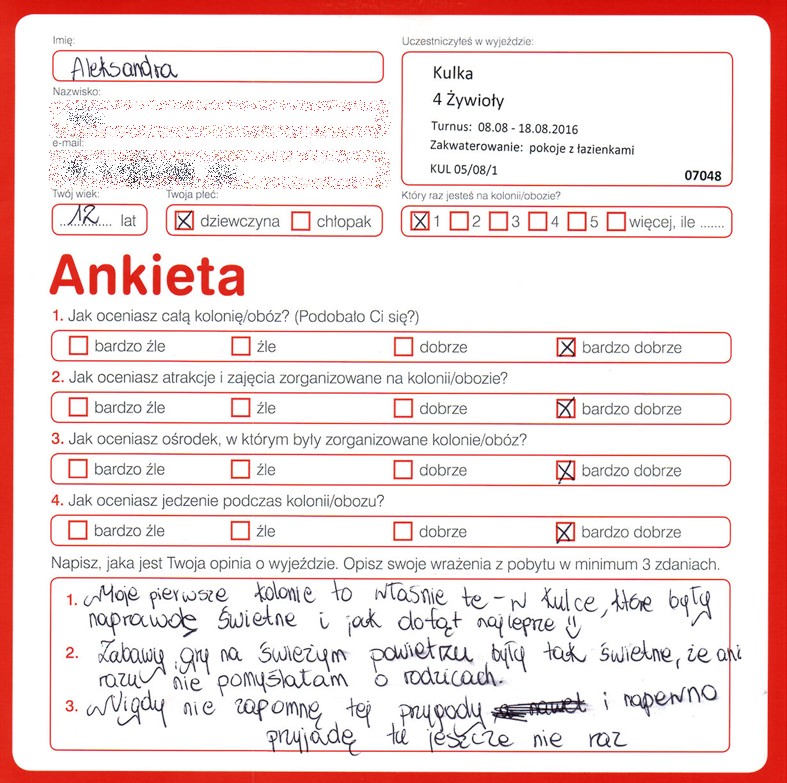 Imię:
Aleksandra
Nazwisko:
e-mail:
Twój wiek:
12 lat
Twoja płeć:
dziewczyna chłopak
Uczestniczyłeś w wyjeździe:
Kulka
4 Żywioły
Turnus: 08.08 - 18.08.2016
Zakwaterowanie: pokoje z łazienkami
KUL 05/08/1
07048
Który raz jesteś na kolonii/obozie?
1 2 3 4 5 więcej, ile .......
Ankieta
1. Jak oceniasz całą kolonię/obóz? (Podobało Ci się?)
bardzo źle źle dobrze bardzo dobrze
2. Jak oceniasz atrakcje i zajęcia zorganizowane na kolonii/obozie?
bardzo źle źle dobrze bardzo dobrze
3. Jak oceniasz ośrodek, w którym były zorganizowane kolonie/obóz?
bardzo źle źle dobrze bardzo dobrze
4. Jak oceniasz jedzenie podczas kolonii/obozu?
bardzo źle źle dobrze bardzo dobrze
Napisz, jaka jest Twoja opinia o wyjeździe. Opisz swoje wrażenia z pobytu w minimum 3 zdaniach.
1. Moje pierwsze kolonie to właśnie te - w Kulce, które były
naprawdę świetne i jak dotąt najleprze
2. Zabawy, gry na świeżym powietrzu były tak świetne, że ani
razu nie pomyślałam o rodzicach.
3. Nigdy nie zapomnę tej przygody a nawet i napewno
przyjadę tu jeszcze nie raz